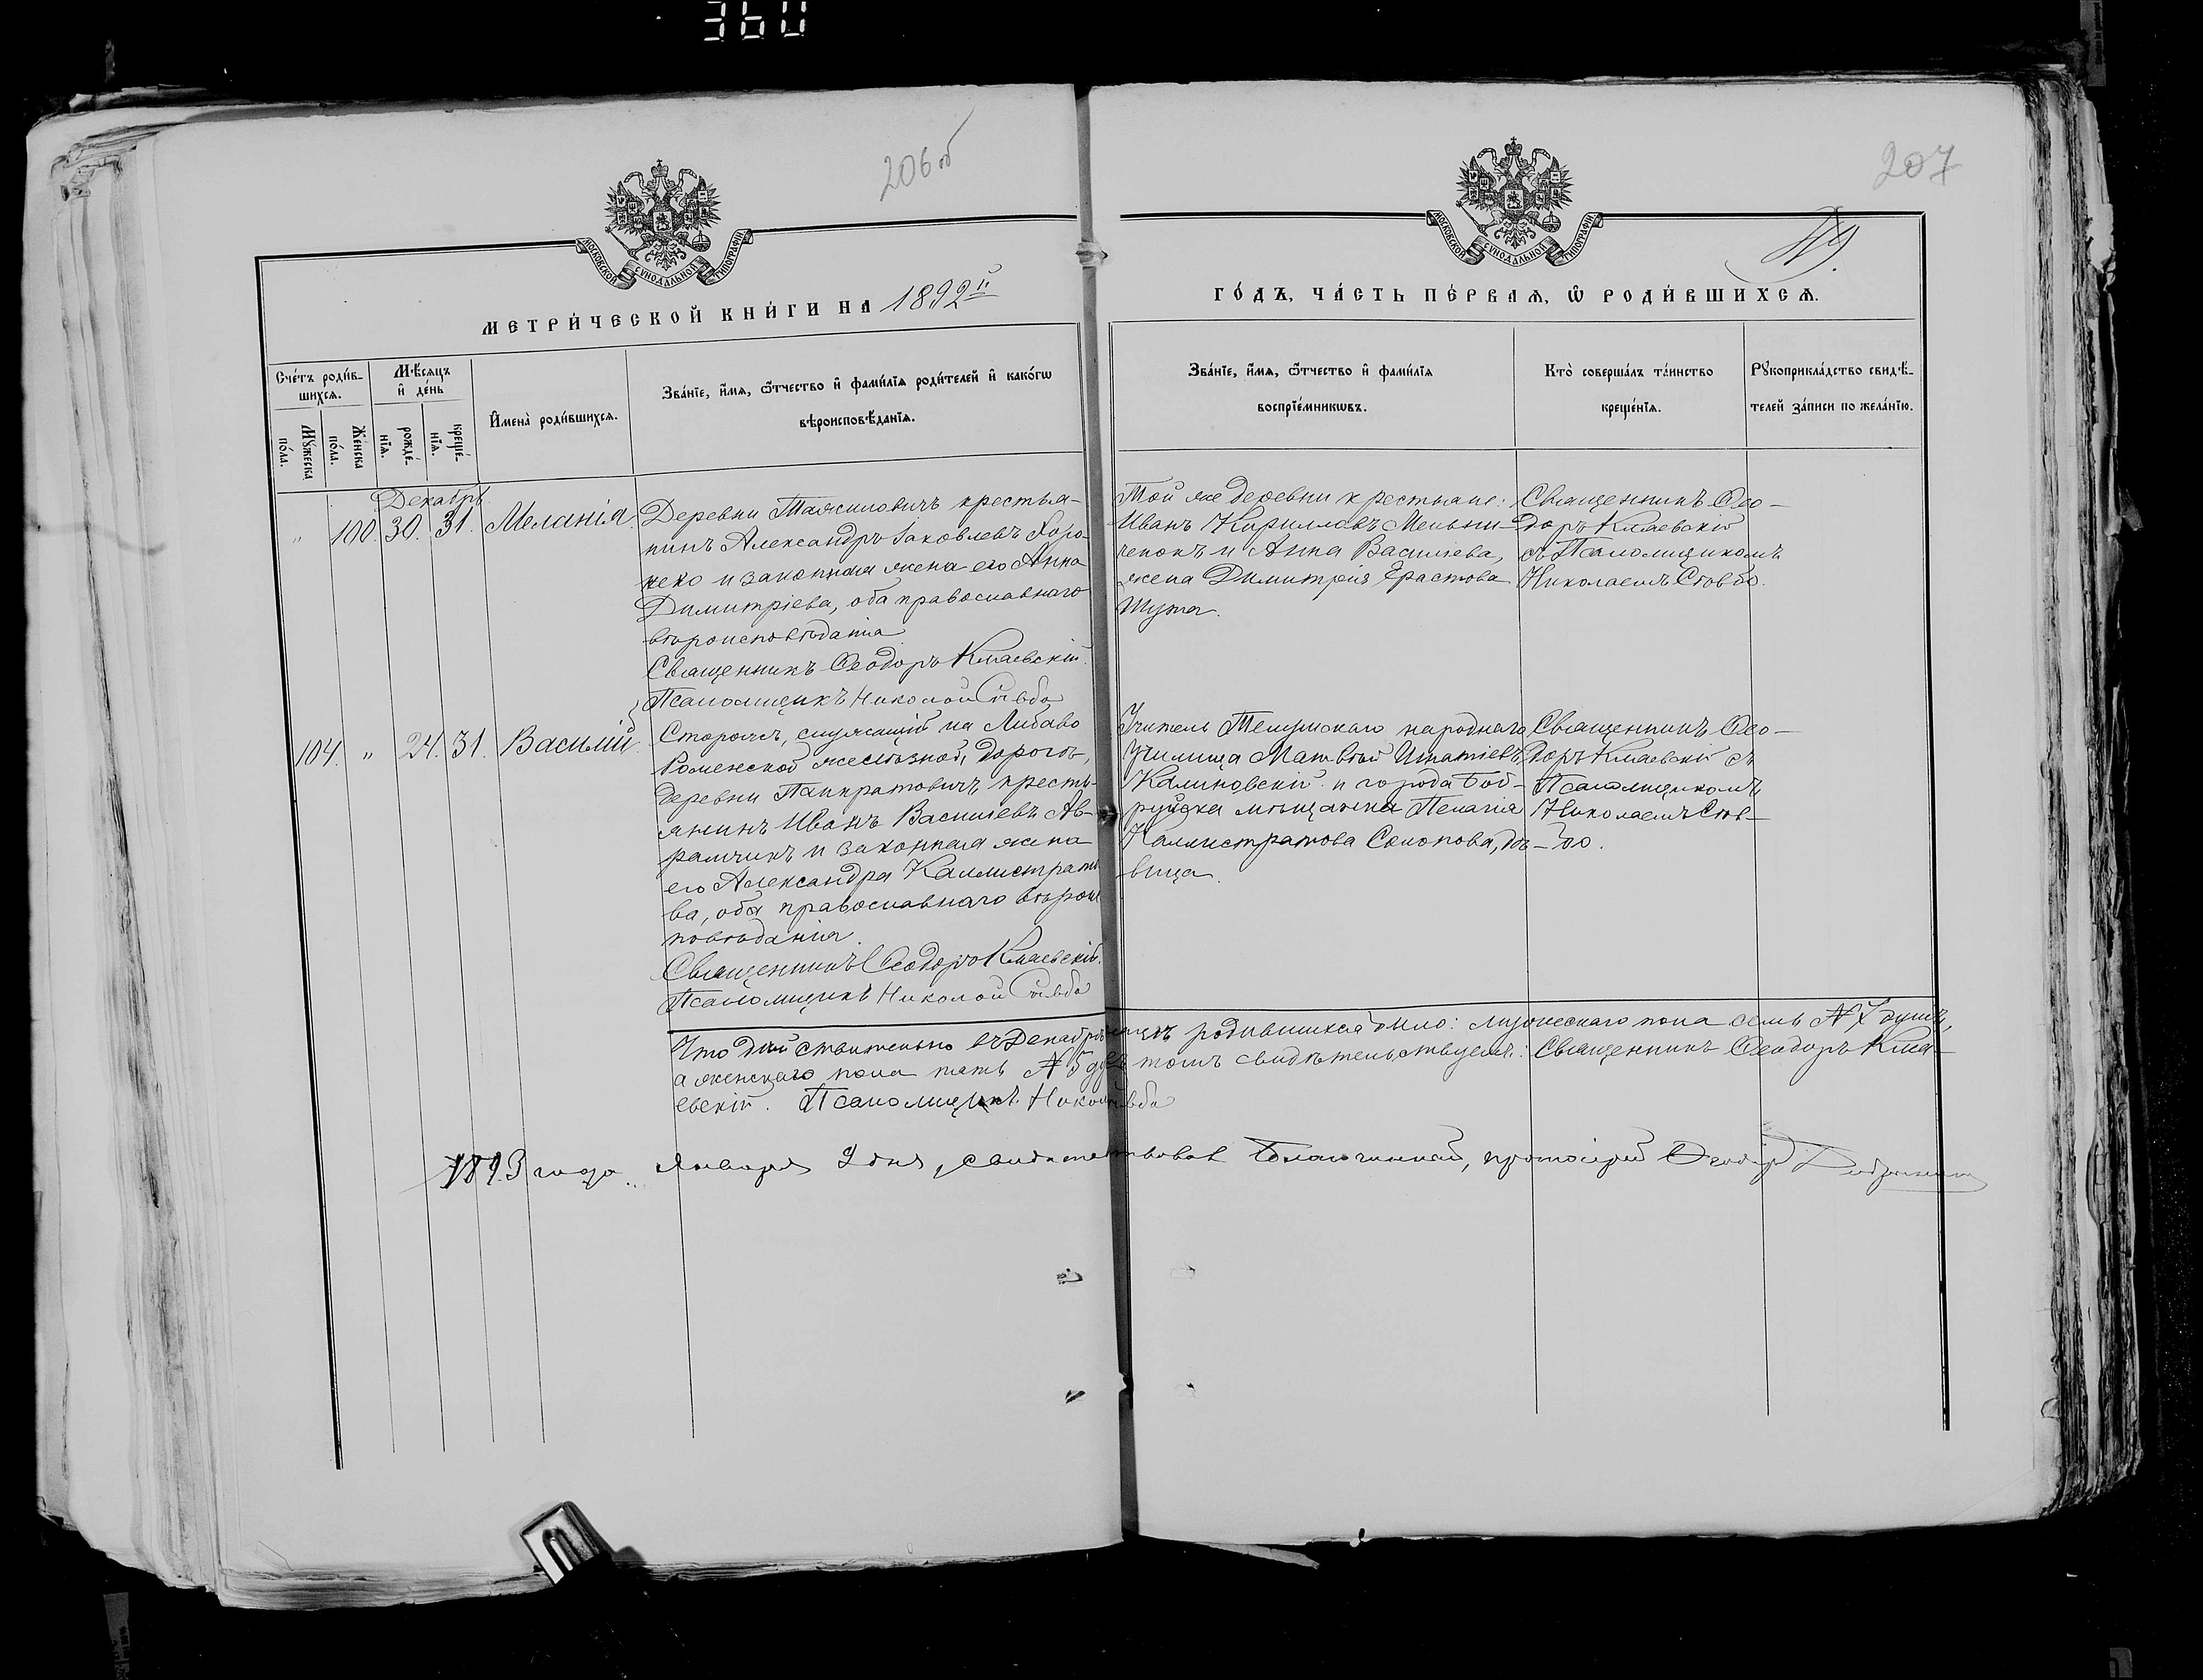 360
206 об
207
МОСКОВСКОЙ СѴНОДАЛЬНОЙ ТИПОГРАФІИ
МОСКОВСКОЙ СѴНОДАЛЬНОЙ ТИПОГРАФІИ
МЕТРИ́ЧЕСКОЙ КНИ́ГИ НА 1892й
ГО́ДЪ, ЧА́СТЬ ПЕ́РВАѦ, Ѽ РОДИ́ВШИХСѦ.
Сче́тъ роди́в-
шихсѧ.
Мꙋ́жеска по́ла.
Же́нска по́ла.
Мѣ́сѧцъ
и҆ де́нь
рожде́-
нїѧ.
креще́-
нїѧ.
И҆мена̀ роди́вшихсѧ.
Зва́нїе, и҆́мѧ, ѻ҆́тчество и҆ фами́лїѧ роди́телей и҆ како́гѡ
вѣроисповѣ́данїѧ.
Зва́нїе, и҆́мѧ, ѻ҆́тчество и҆ фами́лїѧ
воспрїе́мникѡвъ.
Кто̀ соверша́лъ та́инство
креще́нїѧ.
Рꙋкоприкла́дство свидѣ́-
телей за́писи по жела́нїю.
Декабрь
" 100. 30. 31. Меланія.
Деревни Тажиловичъ крестья-
нинъ Александръ Іаковлевъ Хоро-
неко и законная жена его Анна
Димитріева, оба православнаго
вѣроисповѣданія
Священникъ Ѳеодоръ Кмаевскій.
Псаломщикъ Николай Стѣбо
Той же деревни крестьяне:
Иванъ Кирилловъ Мельни-
ченокъ и Анна Василіева,
жена Димитрія Ерастова
Шуша.
Священникъ Ѳео-
доръ Кмаевскій
съ Псаломщикомъ
Николаемъ Стѣбо.
104. " 24. 31. Василій.
Сторожъ, служащій на Либаво
Роменской желѣзной дорогѣ,
деревни Панкратовичъ кресть-
янинъ Иванъ Василіевъ Ав-
рамчикъ и законная жена
его Александра Каллистрато
ва, оба православнаго вѣроис
повѣданія.
Священникъ Ѳеодоръ Кмаевскій.
Псаломщикъ Николай Стѣбо
Учитель Телушскаго народнаго
Училища Матвѣй Игнатіевъ
Калиновскій и города Боб-
руйска мѣщанка Пелагія
Каллистратова Сапонова, дѣ-
вица.
Священникъ Ѳео-
доръ Кмаевскій съ
Псаломщикомъ
Николаемъ Стѣ-
бо.
Что дѣйствительно въ Декабрѣ родившихся было: мужескаго пола семь № 7 душъ,
а женскаго пола пять № 5 томъ свидѣтельствуемъ: Священникъ Ѳеодоръ Кма-
евскій. Псаломщикъ Николай Стѣбо
1893 года Января 9 дня, свидетельствовалъ Благочинный, протоіерей Ѳеодоръ